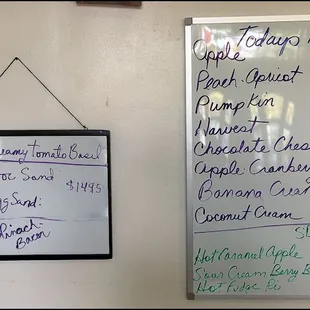 eamy Tomato Basil
oc Sand
$14.95
g Sand:
Spinach
Bacon
Todays
Apple
Peach-Apricot
Pumpkin
Harvest
Chocolate Ches
Apple Cranber
Banana Crea
Coconut Cream
Hot Caramel Apple
Sour Cream Berry B
Hot Fudge Pe